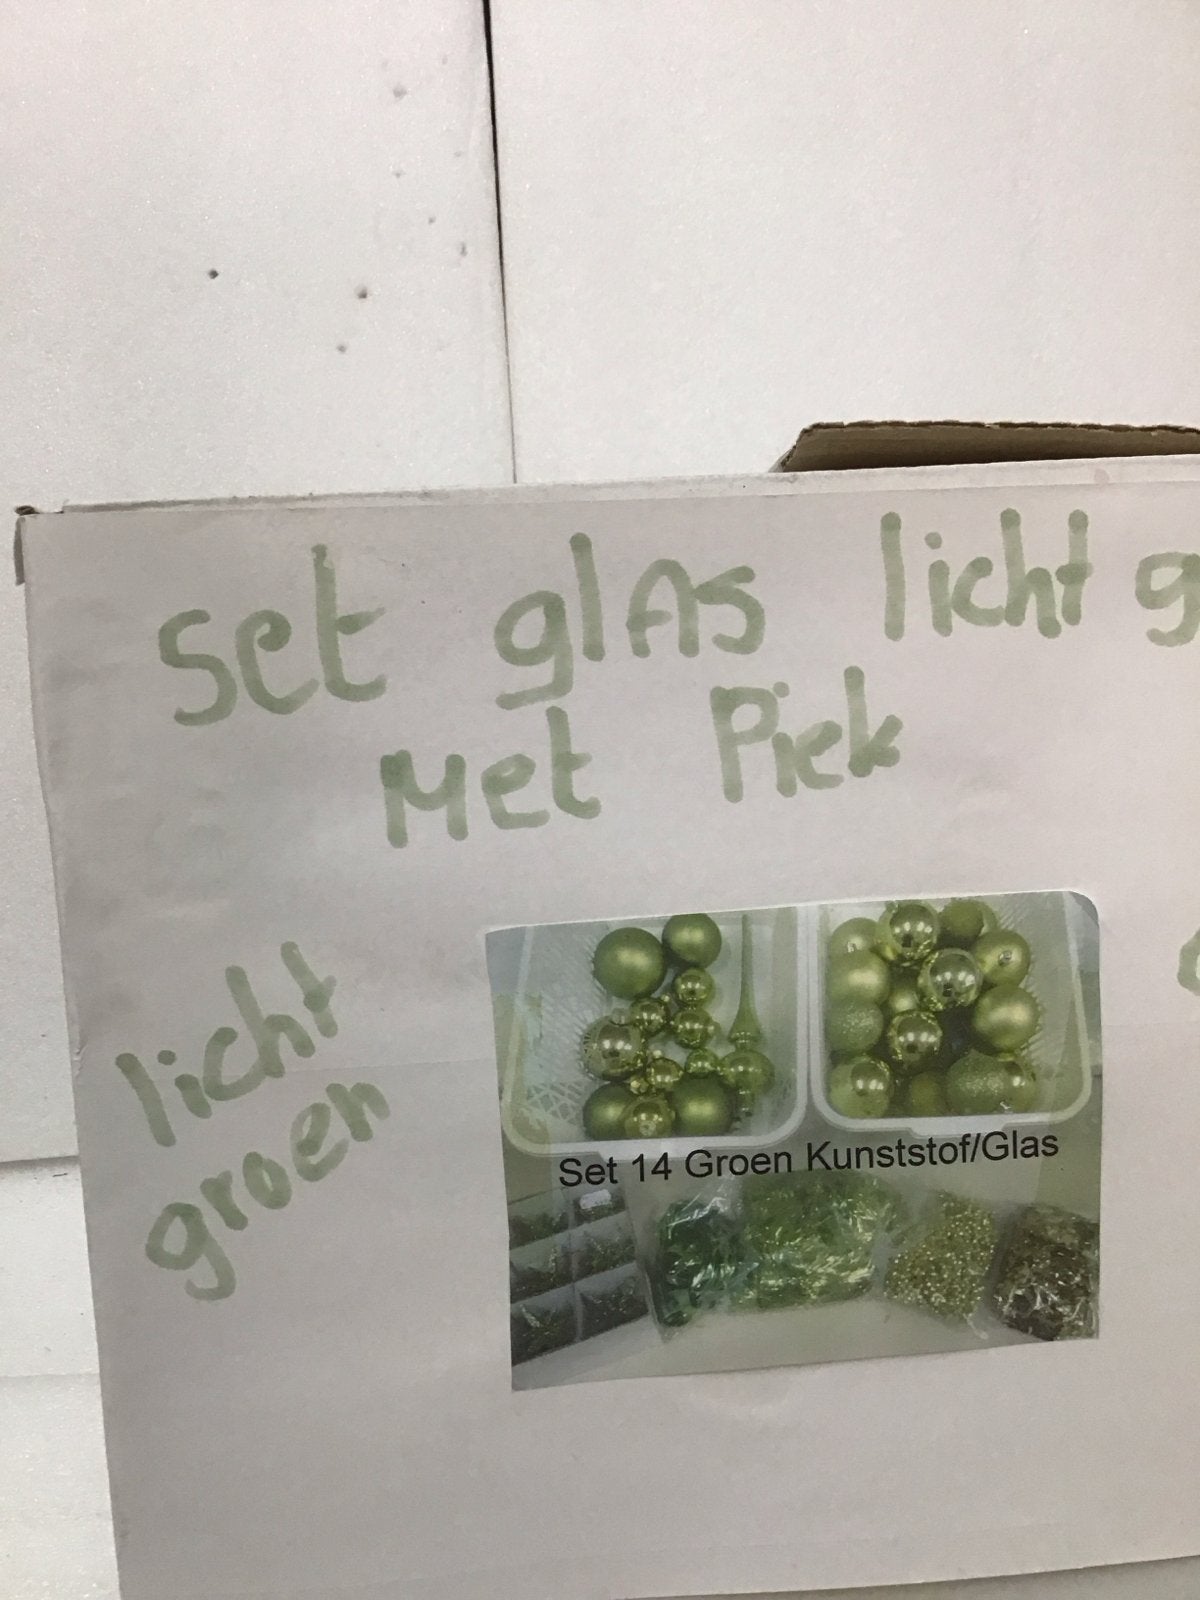 Set glas licht g
Met Piek
licht
groen
Set 14 Groen Kunststof/Glas